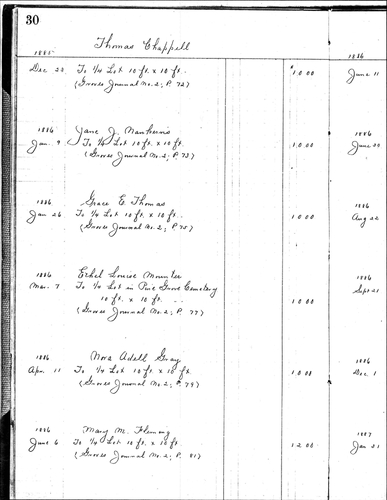 30
Thomas Chappell
1885
1886
Dec 20 To 1/4 Lot 10 ft. x 10 ft. 10 00 June 11
(Groves Journal No. 2; P. 72)
1886
Jane J.
Jan. 9 To 1/4 Lot 10 ft. x 10 ft. 10 00 June 29
(Groves Journal No. 2; P. 73)
1886
Grace E Thomas
1886
Jan 26 To 1/4 Lot 10 ft. x 10 ft. 10 00 Aug 22
(Groves Journal No. 2; P. 75)
1886
Ethel Louise
1886
Mar. 7 To 1/4 Lot in Pine Grove Cemetery Sept 21
10 ft. x 10 ft. 10 00
(Groves Journal No. 2; P. 77)
1886
Nora Adell Gray
1886
Apr. 11 To 1/4 Lot 10 ft. x 10 ft. 10 00 Dec 1
(Groves Journal No. 2; P. 79)
1886
Mary M. Fleming
1887
June 6 To 1/4 Lot 10 ft. x 10 ft. 12 00 Jan 21
(Groves Journal No. 2; P. 81)